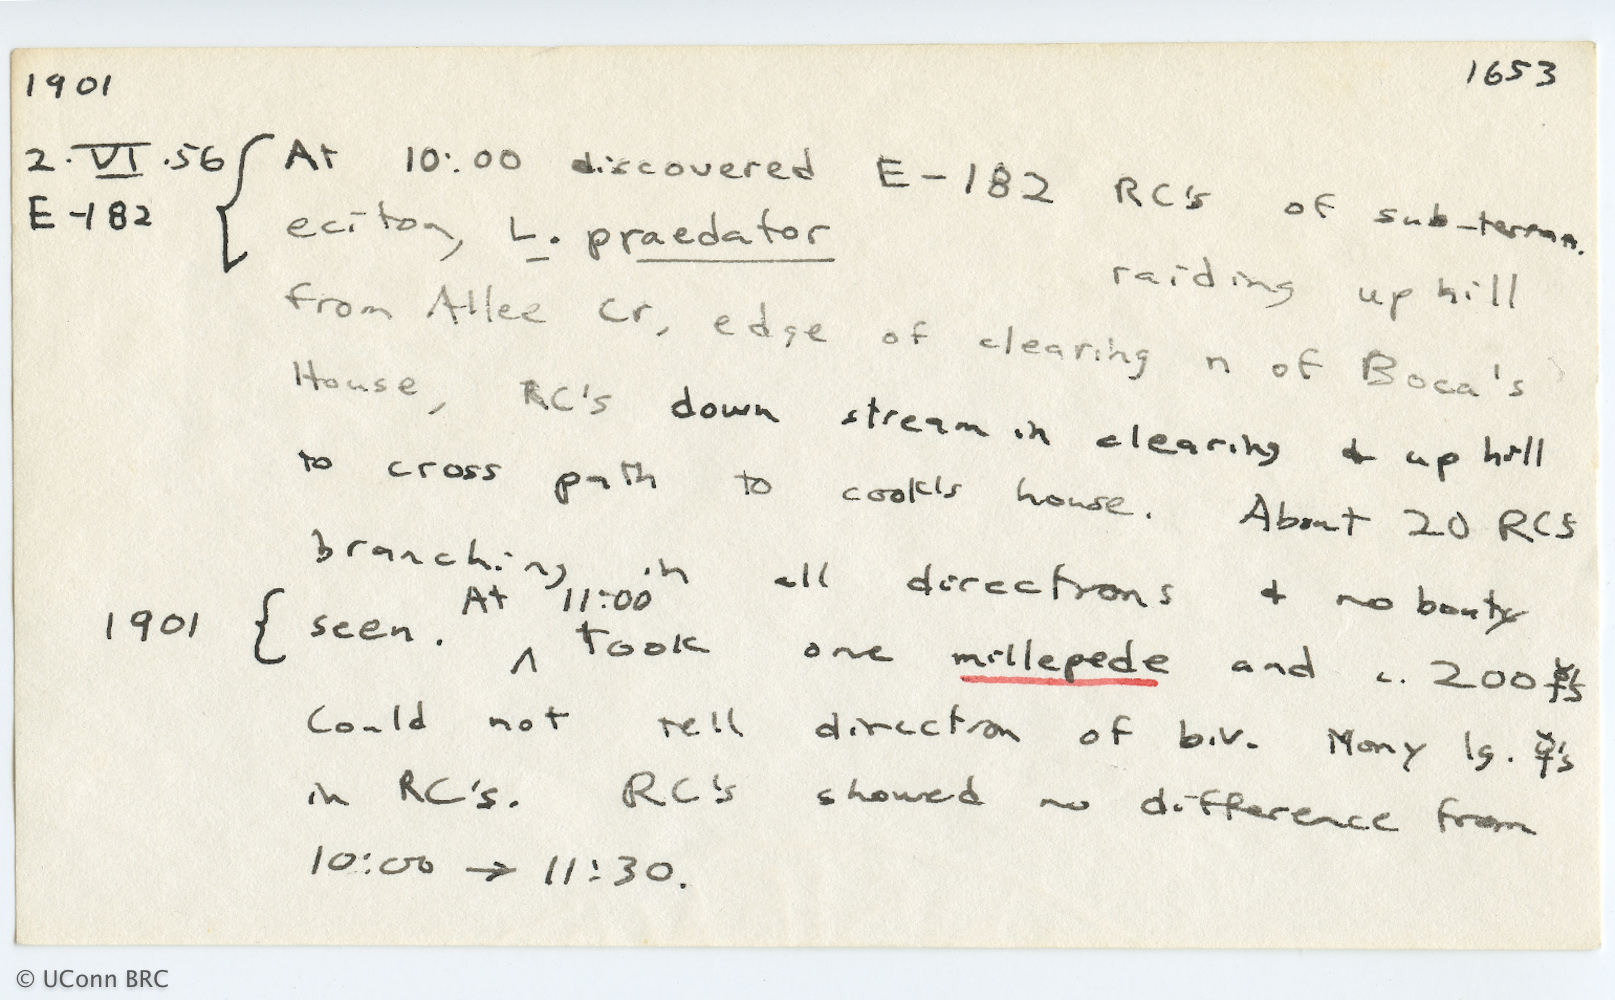 1901 1653
2·VI·56 { At 10:00 discovered E-182 RC's of sub-terran.
E-182 eciton, L. praedator raiding up hill
from Allee Cr, edge of clearing n of Boca's
House, RC's down stream in clearing & up hill
to cross path to cook's house. About 20 RCs
branching in all directions & no booty
At 11:00
1901 { seen. ^ Took one millepede and c. 200 ☿'s
Could not tell direction of biv. Many lg. ☿'s
in RC's. RC's showed no difference from
10:00 → 11:30.
© UConn BRC